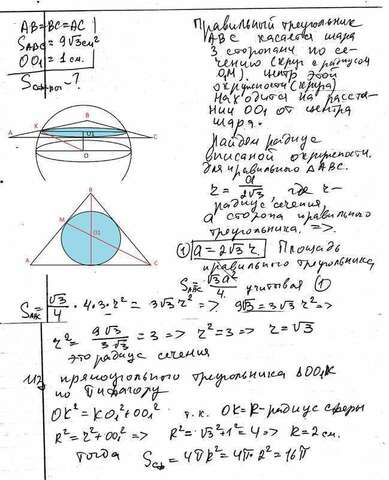 AB=BC=AC
S_ABC=9√3см²
OO₁=1см.
S_сферы-?
Правильный треугольник
ABC касается шара
3 сторонами по се-
чению (круг с радиусом
O₁M). центр этой
окружности (круга)
находится на расстоя-
нии OO₁ от центра
шара.
Найдем радиус
вписаной окружности.
для правильного ΔABC.
r = a/2√3 где r-
радиус сечения,
a сторона правильного
треугольника. =>.
① a=2√3 r Площадь
правильного треугольника
S_ABC=√3a²/4. учитывая ①
K
O1
A
C
B
O
B
M
O1
A
C
S_ABC=√3/4 · 4·3·r² = 3√3 r² => 9√3=3√3 r² =>
r² = 9√3/3√3 = 3 => r²=3 => r=√3
это радиус сечения
Из прямоугольного треугольника ΔOO₁K
по Пифагору
OK²=KO₁²+OO₁² т.к. OK=R-радиус сферы
R²=r²+OO₁² => R²=√3²+1²=4 => R=2см.
тогда S_сф=4πR²=4π·2²=16π